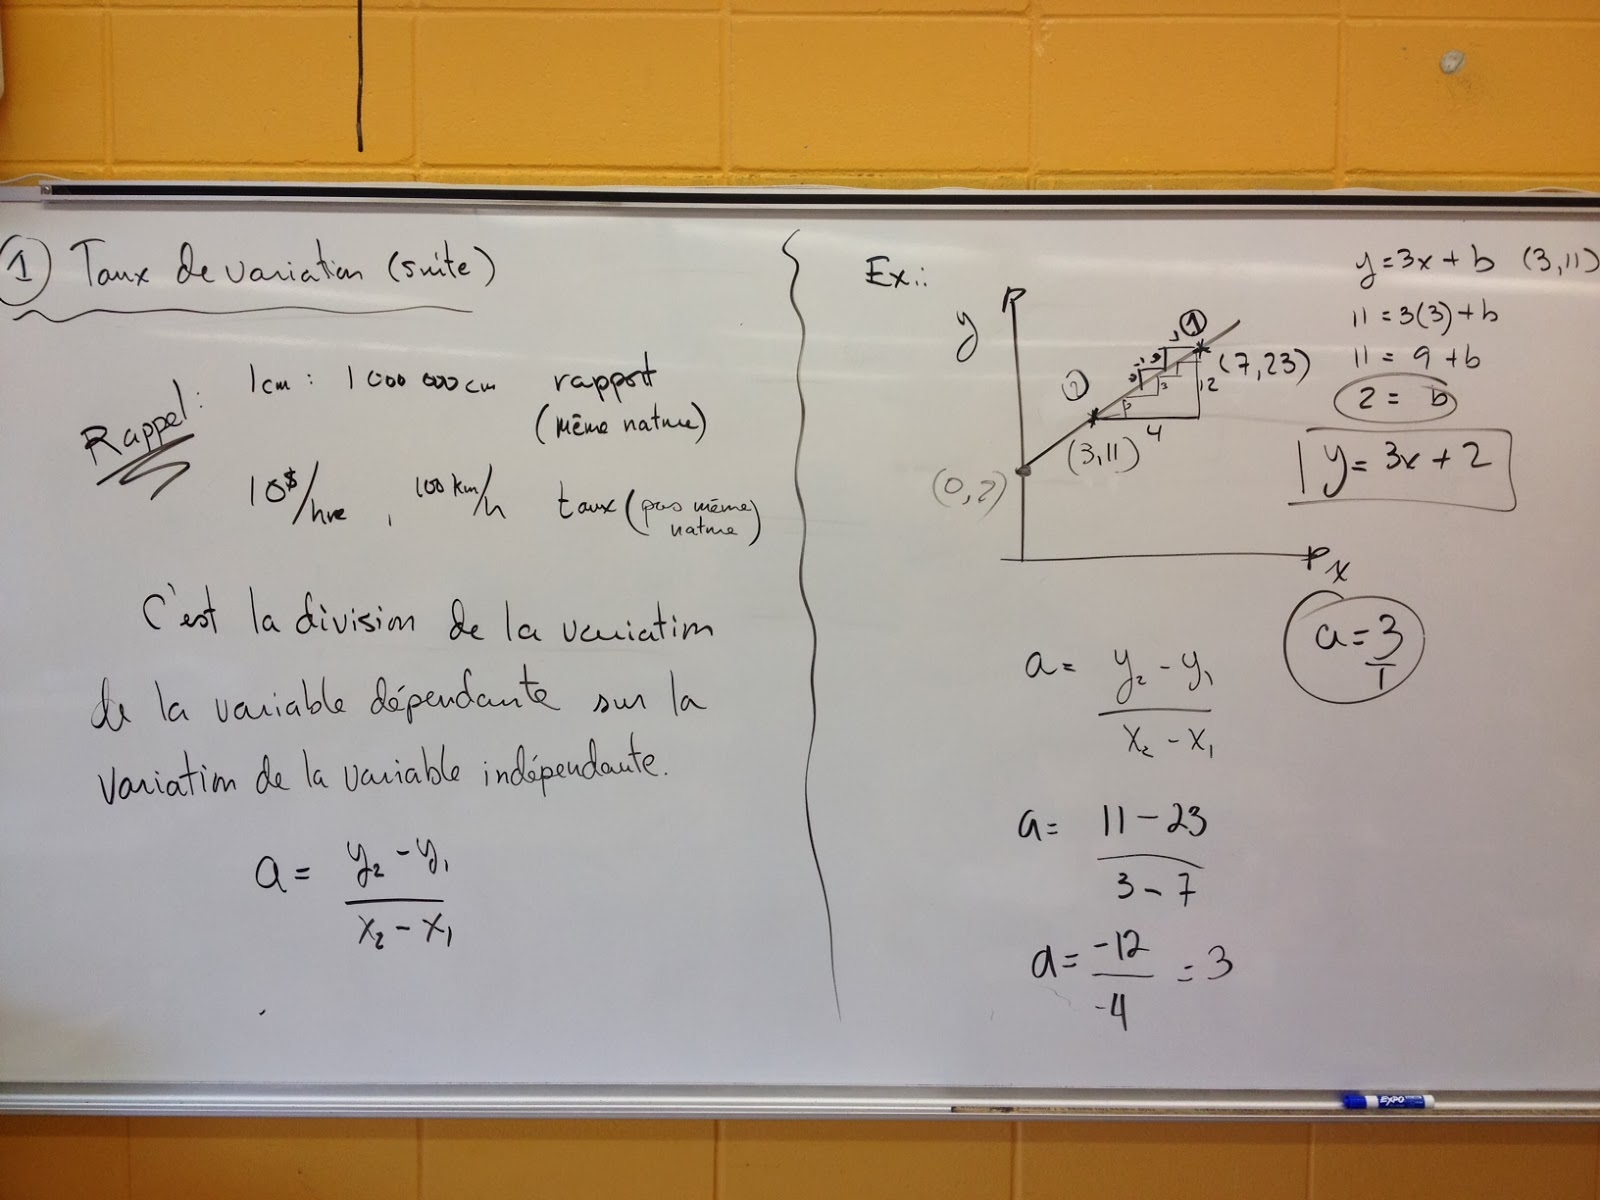 1 Taux de variation (suite)
Rappel:
1cm : 1 000 000cm rapport
(même nature)
10$/hre , 100km/h taux (pas même
nature)
C'est la division de la variation
de la variable dépendante sur la
variation de la variable indépendante.
a = y₂ - y₁
x₂ - x₁
Ex.:
y
1
(7,23)
12
2
4
(3,11)
(0,2)
x
y=3x+b (3,11)
11 = 3(3)+b
11 = 9+b
2 = b
y= 3x+2
a= 3
1
a= y₂ - y₁
x₂ - x₁
a= 11 - 23
3 - 7
a= -12 = 3
-4
EXPO